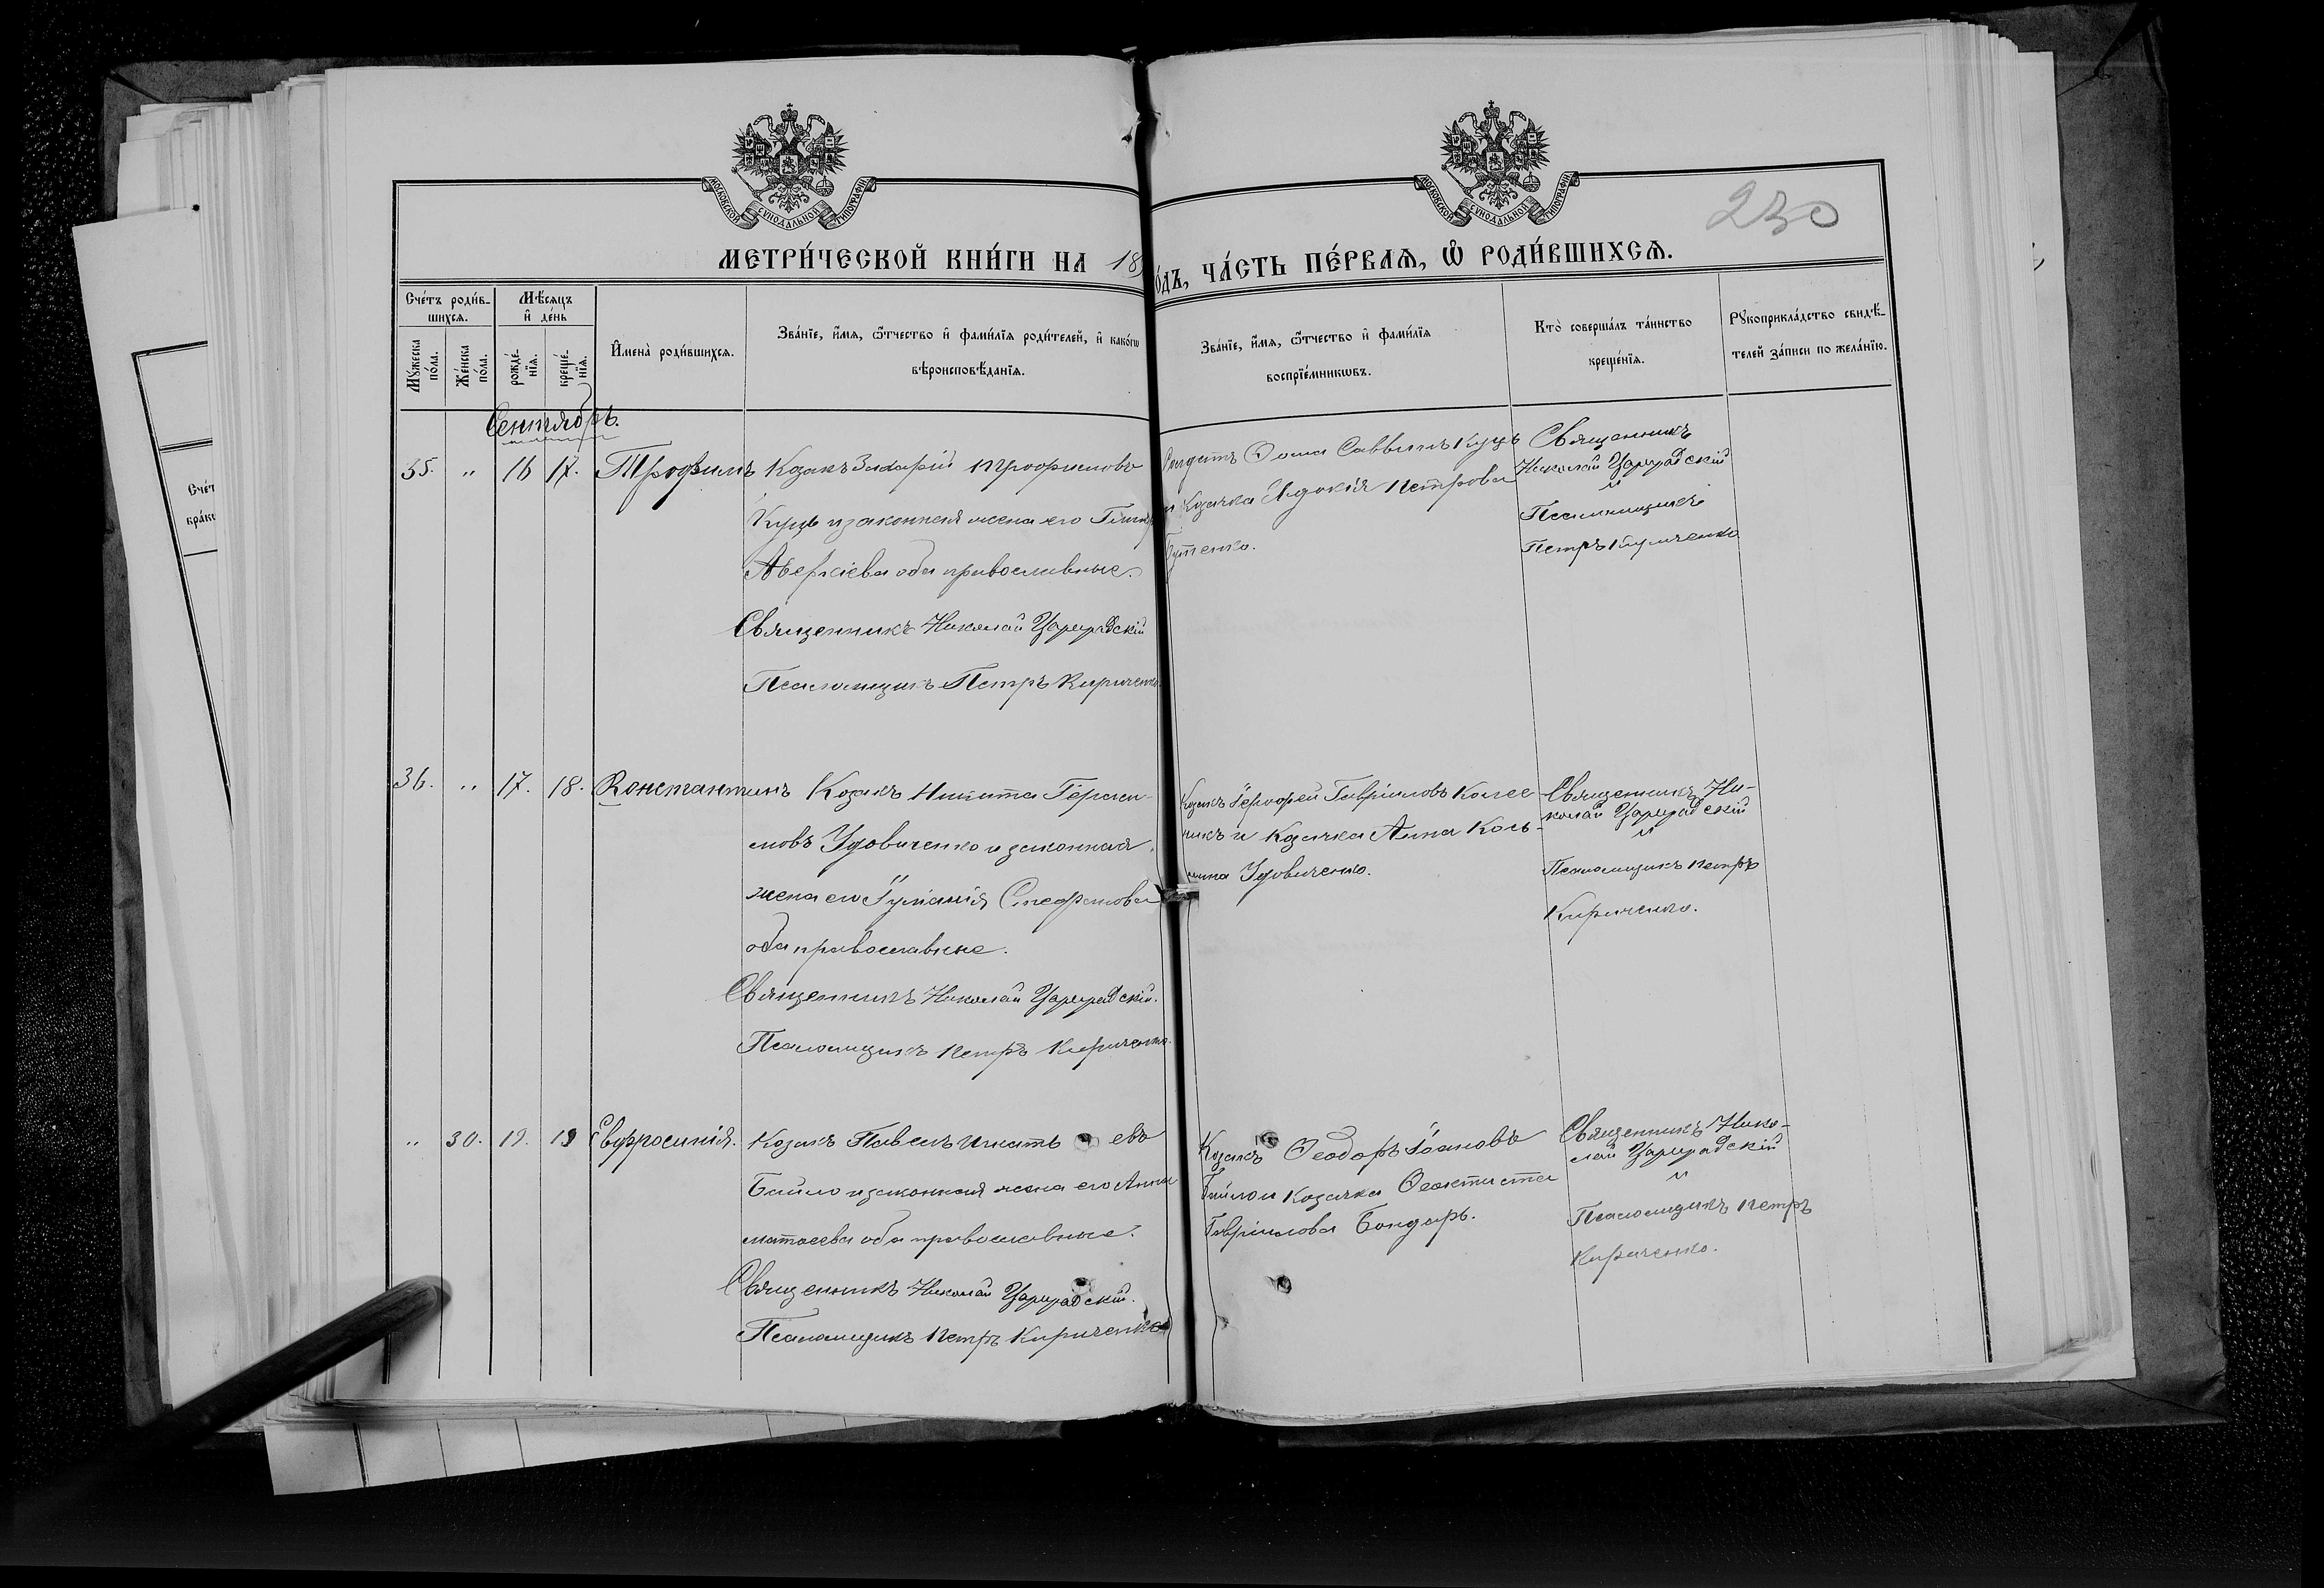 МОСКОВСКОЙ СѴНОДАЛЬНОЙ ТИПОГРАФІИ
МОСКОВСКОЙ СѴНОДАЛЬНОЙ ТИПОГРАФІИ
230
МЕТРИ́ЧЕСКОЙ КНИ́ГИ НА 18
о́дъ, ЧА́СТЬ ПЕ́РВАѦ, Ѿ РОДИ́ВШИХСѦ.
Сче́тъ роди́в-
шихсѧ.
Мѣ́сѧцъ
и҆ де́нь
Мꙋ́жеска
по́ла.
Же́нска
по́ла.
рожде́-
нїѧ.
креще́-
нїѧ.
И҆мена̀ роди́вшихсѧ.
Зва́нїе, и҆́мѧ, ѻ҆́тчество и҆ фами́лїѧ роди́телей, и҆ како́гѡ
вѣроисповѣ́данїѧ.
Зва́нїе, и҆́мѧ, ѻ҆́тчество и҆ фами́лїѧ
воспрїе́мникѡвъ.
Кто̀ соверша́лъ та́инство
креще́нїѧ.
Рꙋкоприкла́дство свидѣ́-
телей за́писи по жела́нїю.
Сче́т
Сентябрь.
35. " 16 17. Трофимъ Козакъ Захарій Трофимовъ
Куцъ и законная жена его
Аверкіева оба православные.
Священникъ Николай Цареградскій
Псаломщикъ Петръ Кириченко
Солдатъ Ѳома Саввинъ Куцъ
и Козачка Авдокія Петрова
Священникъ
Николай Цареградскій
и
Псаломщикъ
Петръ Кириченко
36. " 17. 18. Константинъ Козакъ Никита Гераси-
мовъ Удовиченко и законная
жена его Іуліанія Стефанова
оба православные.
Священникъ Николай Цареградскій.
Псаломщикъ Петръ Кириченко.
Козакъ Іерофей Гавріиловъ Колес
никъ и Козачка Анна Кось-
мина Удовиченко.
Священникъ Ни-
колай Цареградскій
и
Псаломщикъ Петръ
Кириченко.
" 30. 19. 19 Евфросинія. Козакъ Павелъ Игнать евъ
Байло и законная жена его Анна
Матѳеева оба православные.
Священникъ Николай Цареградскій.
Псаломщикъ Петръ Кириченко
Козакъ Ѳеодоръ Іоановъ
Байло и Козачка Ѳеоктиста
Гавріилова Бондарь.
Священникъ Нико-
лай Цареградскій
и
Псаломщикъ Петръ
Кириченко.